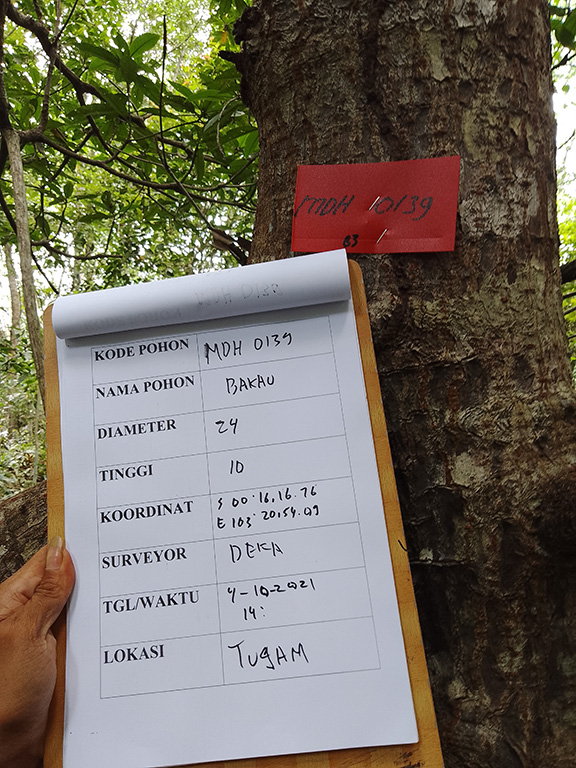 MDH 0139
83
KODE POHON MDH 0139
NAMA POHON BAKAU
DIAMETER 24
TINGGI 10
KOORDINAT S 00.16,16.76
E 103.20,54.09
SURVEYOR DEKA
TGL/WAKTU 4-10-2021
14:
LOKASI TUgAM